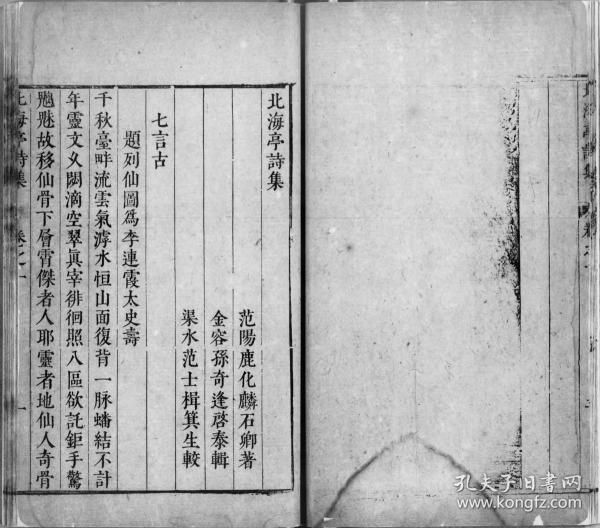 北海亭詩集
范陽鹿化麟石卿著
金容孫奇逢啓泰輯
渠水范士楫箕生較
七言古
題列仙圖爲李連霞太史壽
千秋臺畔流雲氣滹水恒山面復背一脉蟠結不計
年靈文久閟滴空翠眞宰徘徊照八區欲託鉅手驚
魑魅故移仙骨下層霄傑者人耶靈者地仙人奇骨
北海亭詩集 卷之一 一
孔夫子旧书网
www.kongfz.com